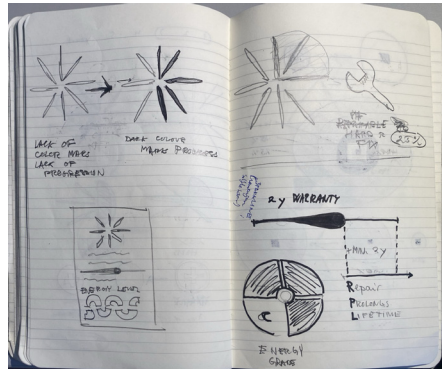 LACK OF
COLOR MEANS
LACK OF
PROGRESSION
DARK COLOUR
MEANS PROGRESS
ENERGY LEVEL
HARD TO
FIX
25%
2y WARRANTY
+MIN. 2y
Repair
PROLONGS
LIFETIME
ENERGY
GRADE